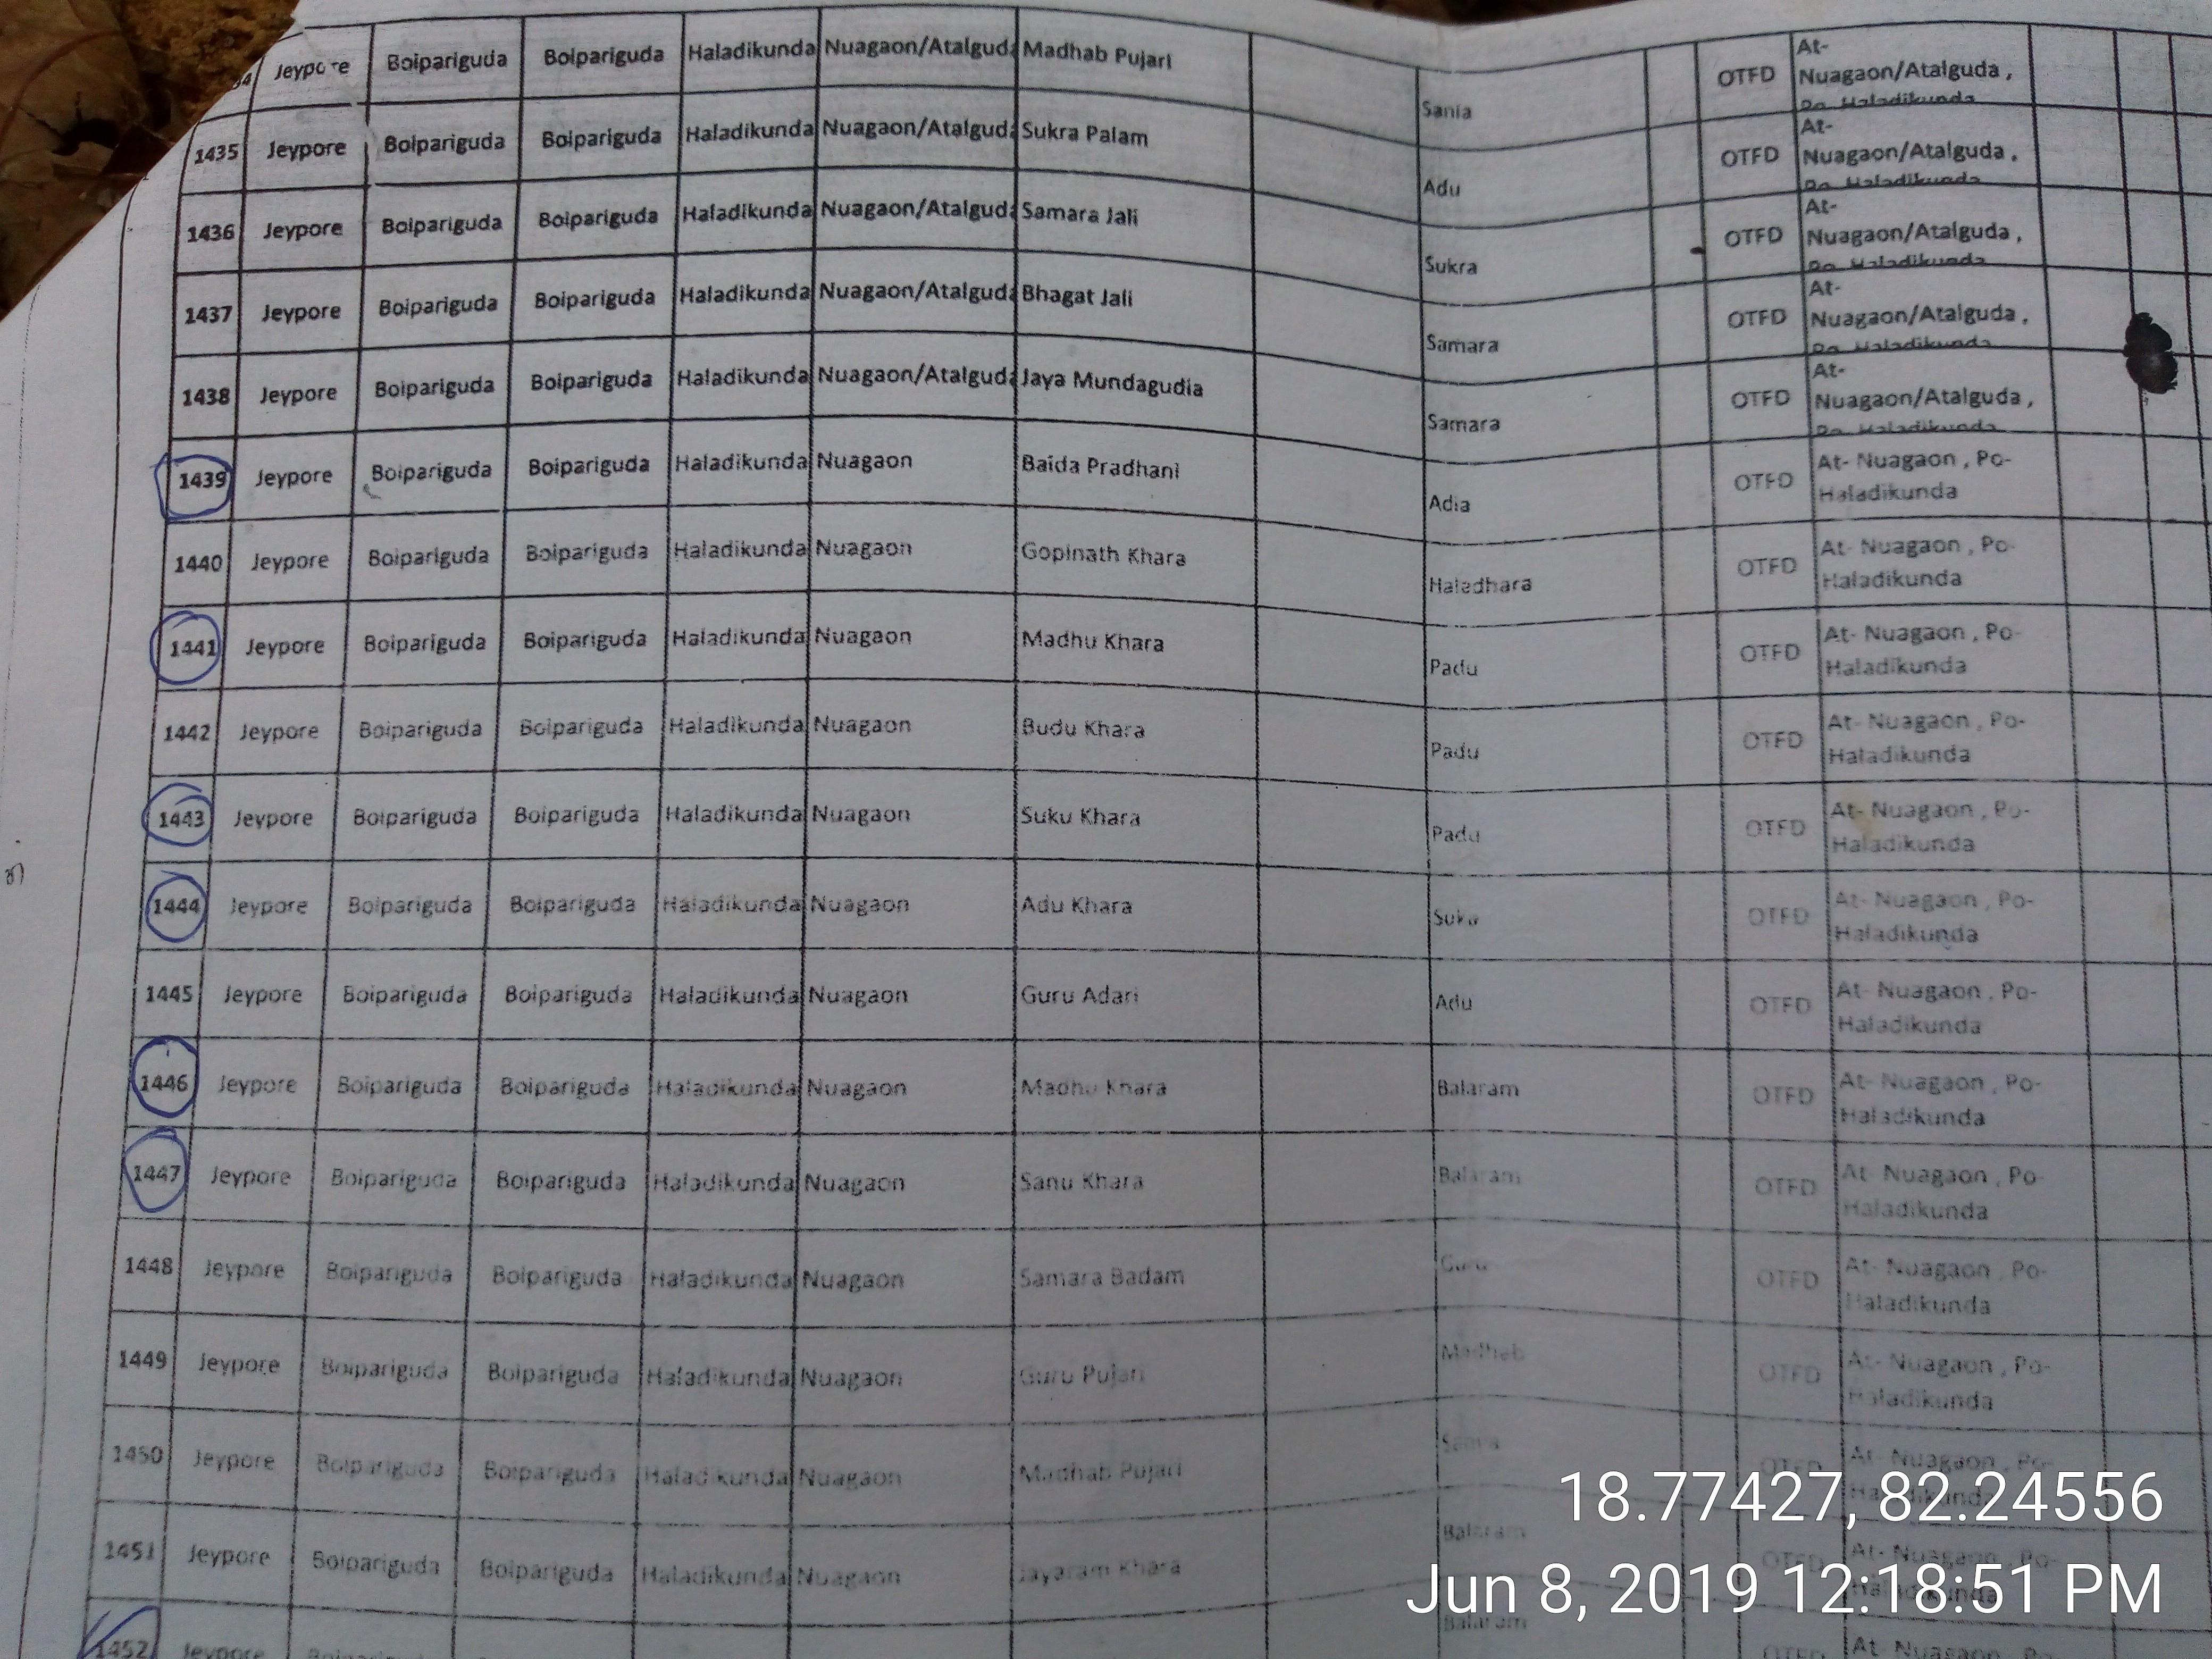 Jeypore Boipariguda Boipariguda Haladikunda Nuagaon/Atalguda Madhab Pujari Sania OTFD At-
Nuagaon/Atalguda ,
Po Haladikunda
1435 Jeypore Boipariguda Boipariguda Haladikunda Nuagaon/Atalguda Sukra Palam Adu OTFD At-
Nuagaon/Atalguda ,
Po Haladikunda
1436 Jeypore Boipariguda Boipariguda Haladikunda Nuagaon/Atalguda Samara Jali Sukra OTFD At-
Nuagaon/Atalguda ,
Po Haladikunda
1437 Jeypore Boipariguda Boipariguda Haladikunda Nuagaon/Atalguda Bhagat Jali Samara OTFD At-
Nuagaon/Atalguda ,
Po Haladikunda
1438 Jeypore Boipariguda Boipariguda Haladikunda Nuagaon/Atalguda Jaya Mundagudia Samara OTFD At-
Nuagaon/Atalguda ,
Po Haladikunda
1439 Jeypore Boipariguda Boipariguda Haladikunda Nuagaon Baida Pradhani Adia OTFD At- Nuagaon , Po-
Haladikunda
1440 Jeypore Boipariguda Boipariguda Haladikunda Nuagaon Gopinath Khara Haladhara OTFD At- Nuagaon , Po-
Haladikunda
1441 Jeypore Boipariguda Boipariguda Haladikunda Nuagaon Madhu Khara Padu OTFD At- Nuagaon , Po-
Haladikunda
1442 Jeypore Boipariguda Boipariguda Haladikunda Nuagaon Budu Khara Padu OTFD At- Nuagaon , Po-
Haladikunda
1443 Jeypore Boipariguda Boipariguda Haladikunda Nuagaon Suku Khara Padu OTFD At- Nuagaon , Po-
Haladikunda
1444 Jeypore Boipariguda Boipariguda Haladikunda Nuagaon Adu Khara OTFD At- Nuagaon , Po-
Haladikunda
1445 Jeypore Boipariguda Boipariguda Haladikunda Nuagaon Guru Adari Adu OTFD At- Nuagaon , Po-
Haladikunda
1446 Jeypore Boipariguda Boipariguda Haladikunda Nuagaon Madhu Khara Balaram OTFD At- Nuagaon , Po-
Haladikunda
1447 Jeypore Boipariguda Boipariguda Haladikunda Nuagaon Sanu Khara Balaram OTFD At- Nuagaon , Po-
Haladikunda
1448 Jeypore Boipariguda Boipariguda Haladikunda Nuagaon Samara Badam Guru OTFD At- Nuagaon , Po-
Haladikunda
1449 Jeypore Boipariguda Boipariguda Haladikunda Nuagaon Guru Pujari Madhab OTFD At- Nuagaon , Po-
Haladikunda
1450 Jeypore Boipariguda Boipariguda Haladikunda Nuagaon Madhab Pujari OTFD At- Nuagaon , Po-
1451 Jeypore Boipariguda Boipariguda Haladikunda Nuagaon Jayaram Khara Balaram OTFD At- Nuagaon , Po-
1452 Jeypore Balaram OTFD At- Nuagaon , Po-
18.77427, 82.24556
Jun 8, 2019 12:18:51 PM